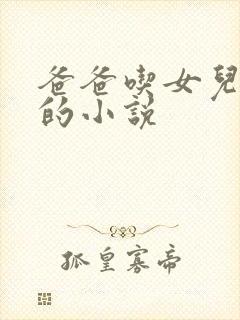 爸爸喫女兒
的小說
孤皇寡帝